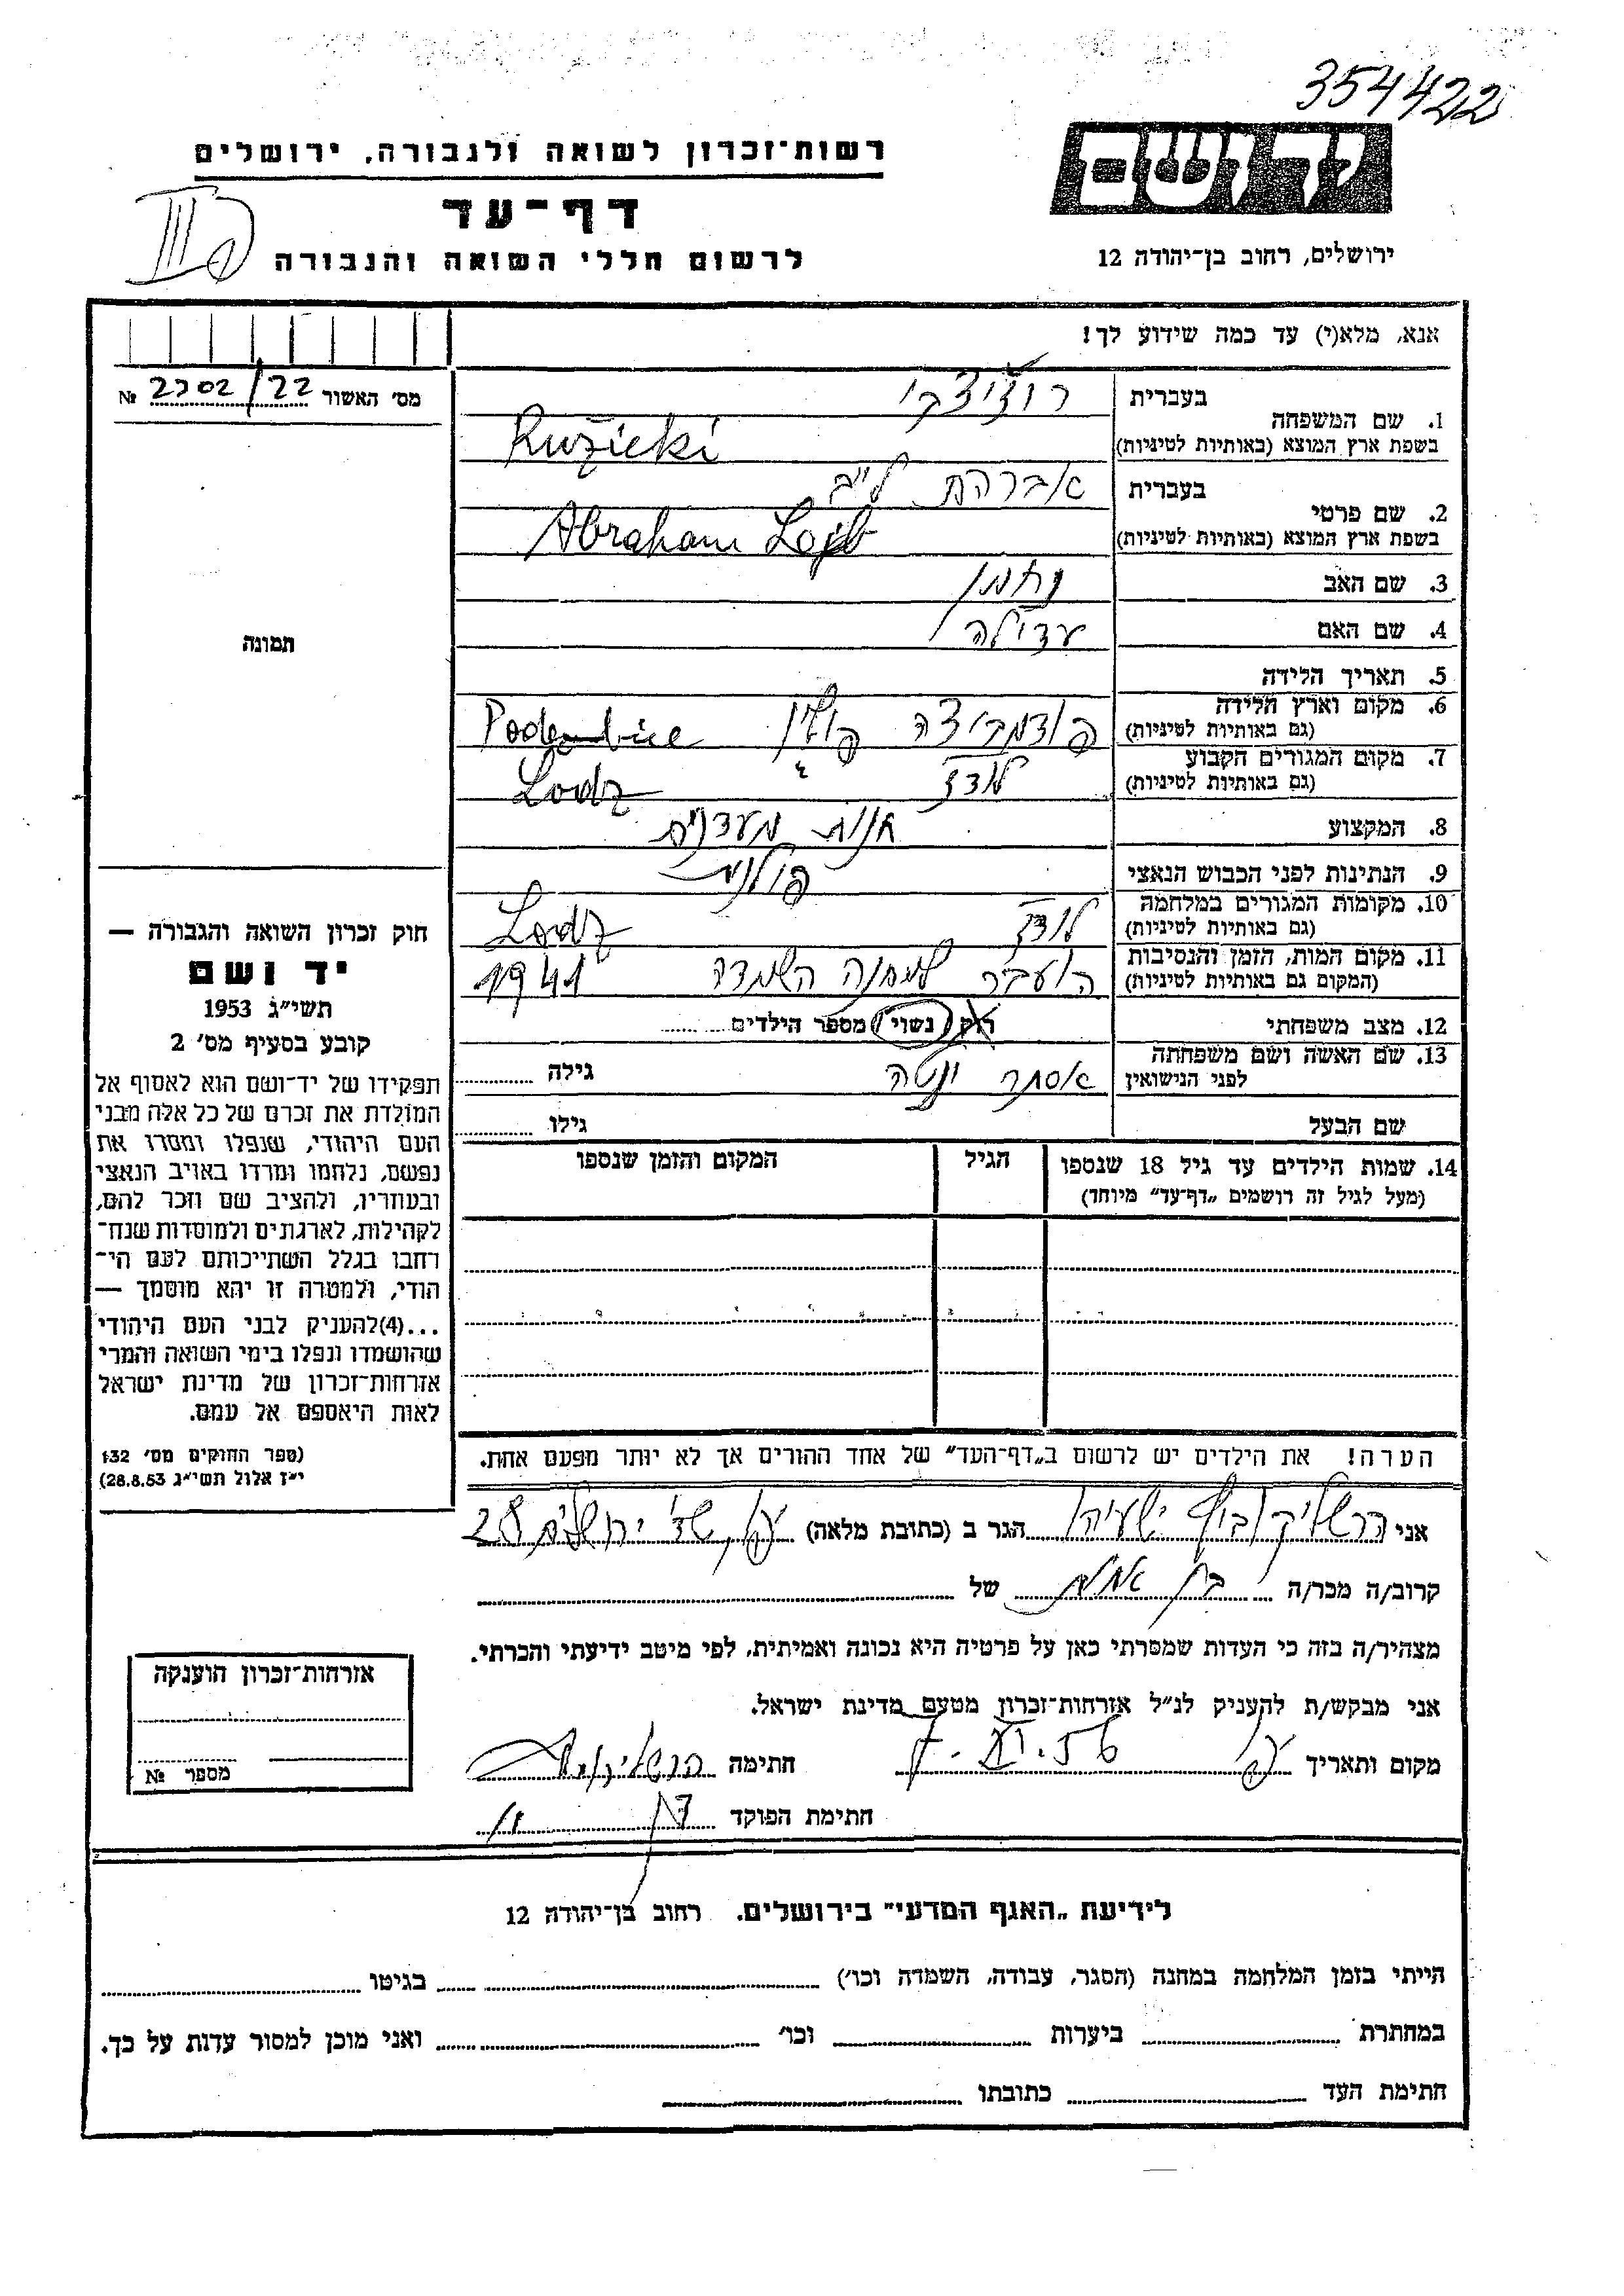 354422
רשות־זכרון לשואה ולגבורה, ירושלים
דף־עד
לרשום חללי השואה והגבורה
יד ושם
ירושלים, רחוב בן־יהודה 12
אנא, מלא(י) עד כמה שידוע לך!
מס׳ האשור 2702/22 №
1. שם המשפחה
בעברית רוז'יצקי
בשפת ארץ המוצא (באותיות לטיניות) Ružicki
2. שם פרטי
בעברית אברהם לייב
בשפת ארץ המוצא (באותיות לטיניות) Abraham Lojb
3. שם האב נחמן
4. שם האם עדילה
5. תאריך הלידה
6. מקום וארץ הלידה
(גם באותיות לטיניות) פודמביצה פולין Podembice
7. מקום המגורים הקבוע
(גם באותיות לטיניות) לודז Lodz
8. המקצוע חנות מעדנים
9. הנתינות לפני הכבוש הנאצי פולנית
10. מקומות המגורים במלחמה
(גם באותיות לטיניות) לודז Lodz
11. מקום המות, הזמן והנסיבות
(המקום גם באותיות לטיניות) הועבר למחנה השמדה 1941
12. מצב משפחתי רוק / נשוי / מספר הילדים
13. שם האשה ושם משפחתה
לפני הנישואין אסתר יוטה גילה
שם הבעל גילו
14. שמות הילדים עד גיל 18 שנספו
(מעל לגיל זה רושמים „דף־עד״ מיוחד)
הגיל
המקום והזמן שנספו
תמונה
חוק זכרון השואה והגבורה —
יד ושם
תשי״ג 1953
קובע בסעיף מס׳ 2
תפקידו של יד־ושם הוא לאסוף אל
המולדת את זכרם של כל אלה מבני
העם היהודי, שנפלו ומסרו את
נפשם, נלחמו ומרדו באויב הנאצי
ובעוזריו, ולהציב שם וזכר להם,
לקהילות, לארגונים ולמוסדות שנח־
רבו בגלל השתייכותם לעם הי־
הודי, ולמטרה זו יהא מוסמך —
...(4)להעניק לבני העם היהודי
שהושמדו ונפלו בימי השואה והמרי
אזרחות־זכרון של מדינת ישראל
לאות היאספם אל עמם.
(ספר החוקים מס׳ 132
י״ז אלול תשי״ג 28.8.53)
הערה! את הילדים יש לרשום ב„דף־העד״ של אחד ההורים אך לא יותר מפעם אחת.
אני הרשליקוביץ ישעיהו הגר ב (כתובת מלאה) יפו, שד׳ ירושלים 28
קרוב/ה מכר/ה בן אחות של
מצהיר/ה בזה כי העדות שמסרתי כאן על פרטיה היא נכונה ואמיתית, לפי מיטב ידיעתי והכרתי.
אני מבקש/ת להעניק לנ״ל אזרחות־זכרון מטעם מדינת ישראל.
מקום ותאריך יפו חתימה
חתימת הפוקד
אזרחות־זכרון הוענקה
מספר №
לידיעת „האגף המדעי״ בירושלים. רחוב בן־יהודה 12
הייתי בזמן המלחמה במחנה (הסגר, עבודה, השמדה וכו׳) בגיטו
במחתרת ביערות וכו׳ ואני מוכן למסור עדות על כך.
חתימת העד כתובתו